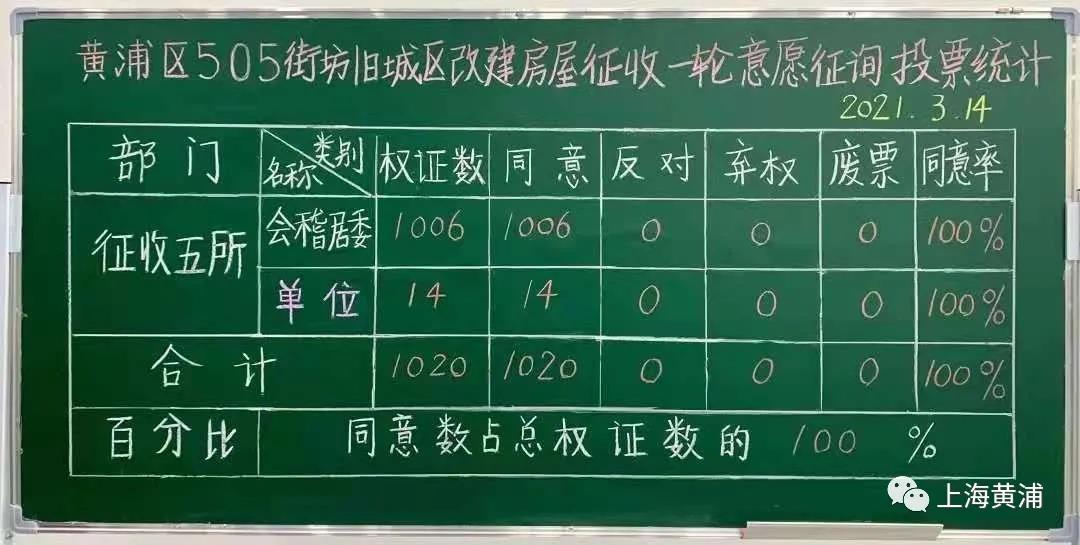 黄浦区505街坊旧城区改建房屋征收一轮意愿征询投票统计
2021.3.14
部门 类别 名称 权证数 同意 反对 弃权 废票 同意率
征收五所 会稽居委 1006 1006 0 0 0 100%
单位 14 14 0 0 0 100%
合计 1020 1020 0 0 0 100%
百分比 同意数占总权证数的 100 %
上海黄浦